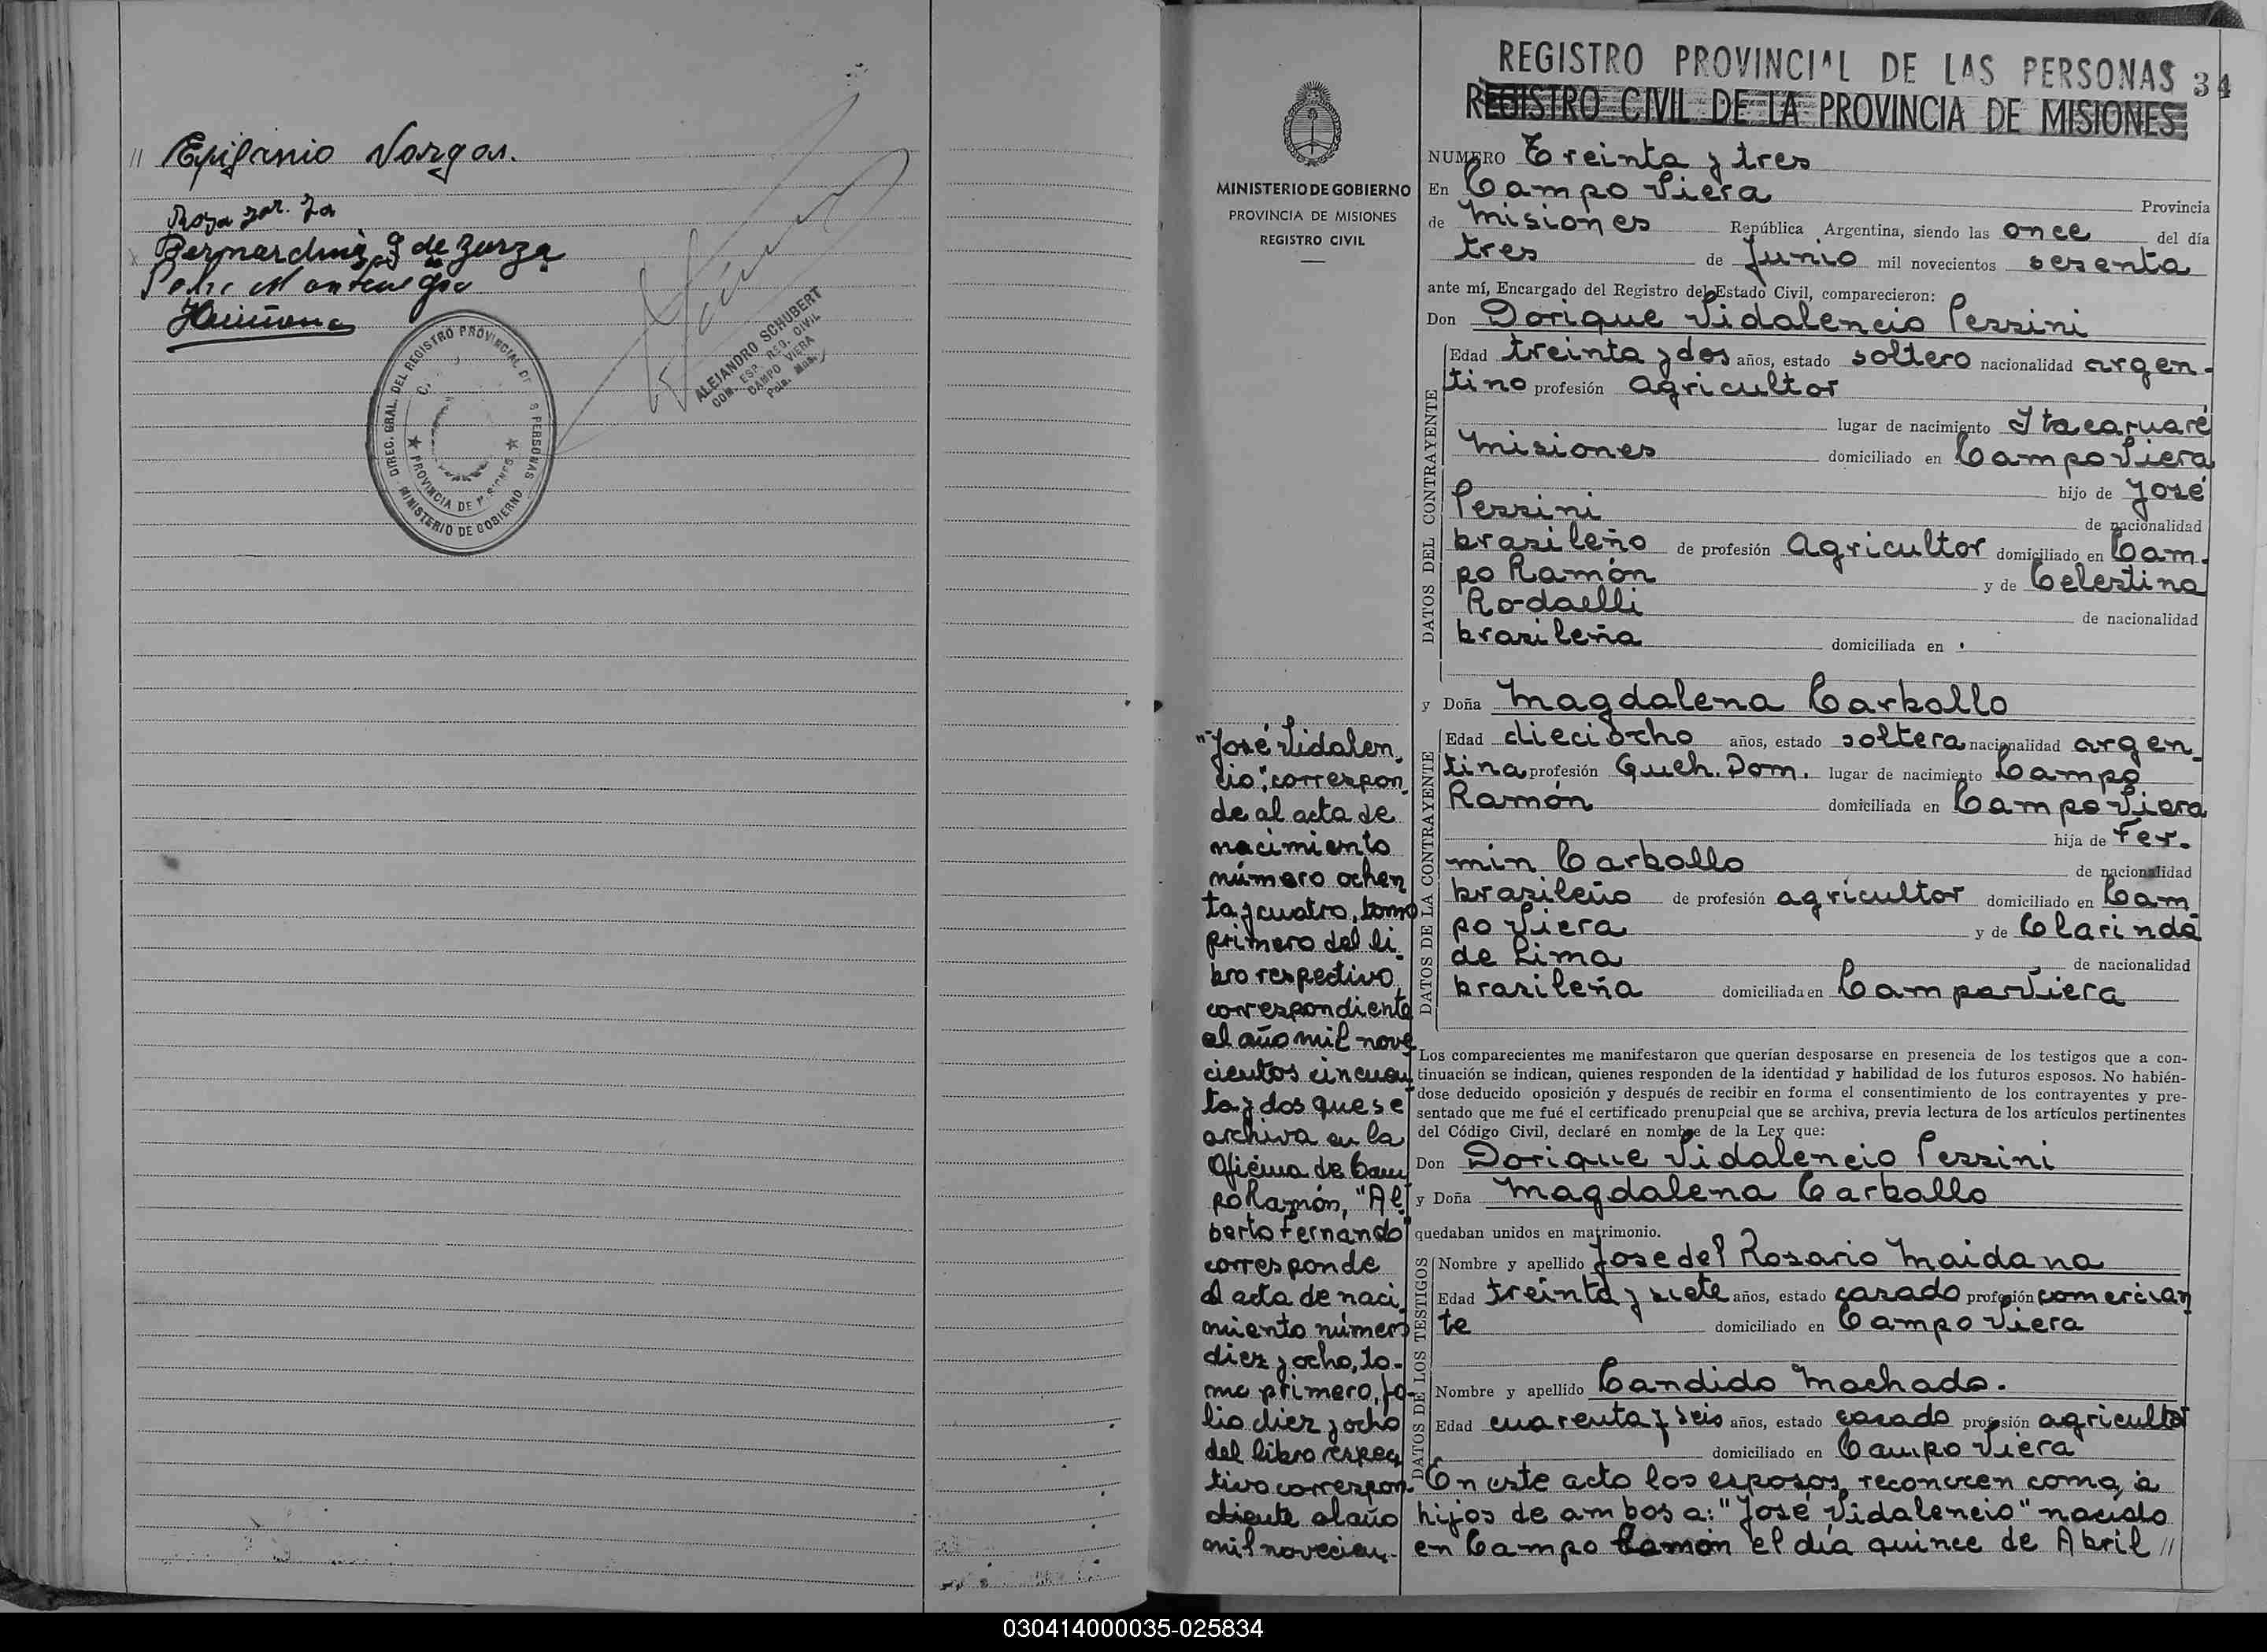 // Epifanio Vargas.
Bernardina g de Zarza
DIREC. GRAL. DEL REGISTRO PROVINCIAL DE S PERSONAS
MINISTERIO DE GOBIERNO
★ PROVINCIA DE MISIONES ★
ALEJANDRO SCHUBERT
COM. ESP. REG. CIVIL
CAMPO VIERA
Pcia. Mnes.
REGISTRO PROVINCIAL DE LAS PERSONAS 34
REGISTRO CIVIL DE LA PROVINCIA DE MISIONES
MINISTERIO DE GOBIERNO
PROVINCIA DE MISIONES
REGISTRO CIVIL
NUMERO Treinta y tres
En Campo Viera Provincia
de Misiones República Argentina, siendo las once del día
tres de Junio mil novecientos sesenta
ante mí, Encargado del Registro del Estado Civil, comparecieron:
Don Dorique Vidalencio Pezzini
DATOS DEL CONTRAYENTE
Edad treinta y dos años, estado soltero nacionalidad argen-
tino profesión Agricultor
lugar de nacimiento Itacaruaré
Misiones domiciliado en Campo Viera
hijo de José
Pezzini de nacionalidad
brasileño de profesión Agricultor domiciliado en Cam-
po Ramón y de Celestina
Rodaelli de nacionalidad
brasileña domiciliada en
y Doña Magdalena Carballo
DATOS DE LA CONTRAYENTE
Edad dieciocho años, estado soltera nacionalidad argen-
tina profesión Queh. Dom. lugar de nacimiento Campo
Ramón domiciliada en Campo Viera
hija de Fer-
min Carballo de nacionalidad
brasileño de profesión agricultor domiciliado en Cam-
po Viera y de Clarinda
de Lima de nacionalidad
brasileña domiciliada en Campo Viera
Los comparecientes me manifestaron que querían desposarse en presencia de los testigos que a con-
tinuación se indican, quienes responden de la identidad y habilidad de los futuros esposos. No habién-
dose deducido oposición y después de recibir en forma el consentimiento de los contrayentes y pre-
sentado que me fué el certificado prenupcial que se archiva, previa lectura de los artículos pertinentes
del Código Civil, declaré en nombre de la Ley que:
Don Dorique Vidalencio Pezzini
y Doña Magdalena Carballo
quedaban unidos en matrimonio.
DATOS DE LOS TESTIGOS
Nombre y apellido Jose del Rosario Maidana
Edad treinta y siete años, estado casado profesión comercian
te domiciliado en Campo Viera
Nombre y apellido Candido Machado.
Edad cuarenta y seis años, estado casado profesión agricultor
domiciliado en Campo Viera
En este acto los esposos reconocen como a
hijos de ambos a: "José Vidalencio" nacido
en Campo Ramón el día quince de Abril //
"José Vidalen-
cio": correspon-
de al acta de
nacimiento
número ochen
ta y cuatro, tomo
primero del li-
bro respectivo
correspondiente
al año mil nove
cientos cincuen
ta y dos que se
archiva en la
Oficina de Cam
po Ramón, "Al-
berto Fernando"
corresponde
al acta de naci
miento número
diez y ocho, to-
mo primero, fo-
lio diez y ocho
del libro respec
tivo correspon-
diente al año
mil novecien-
030414000035-025834